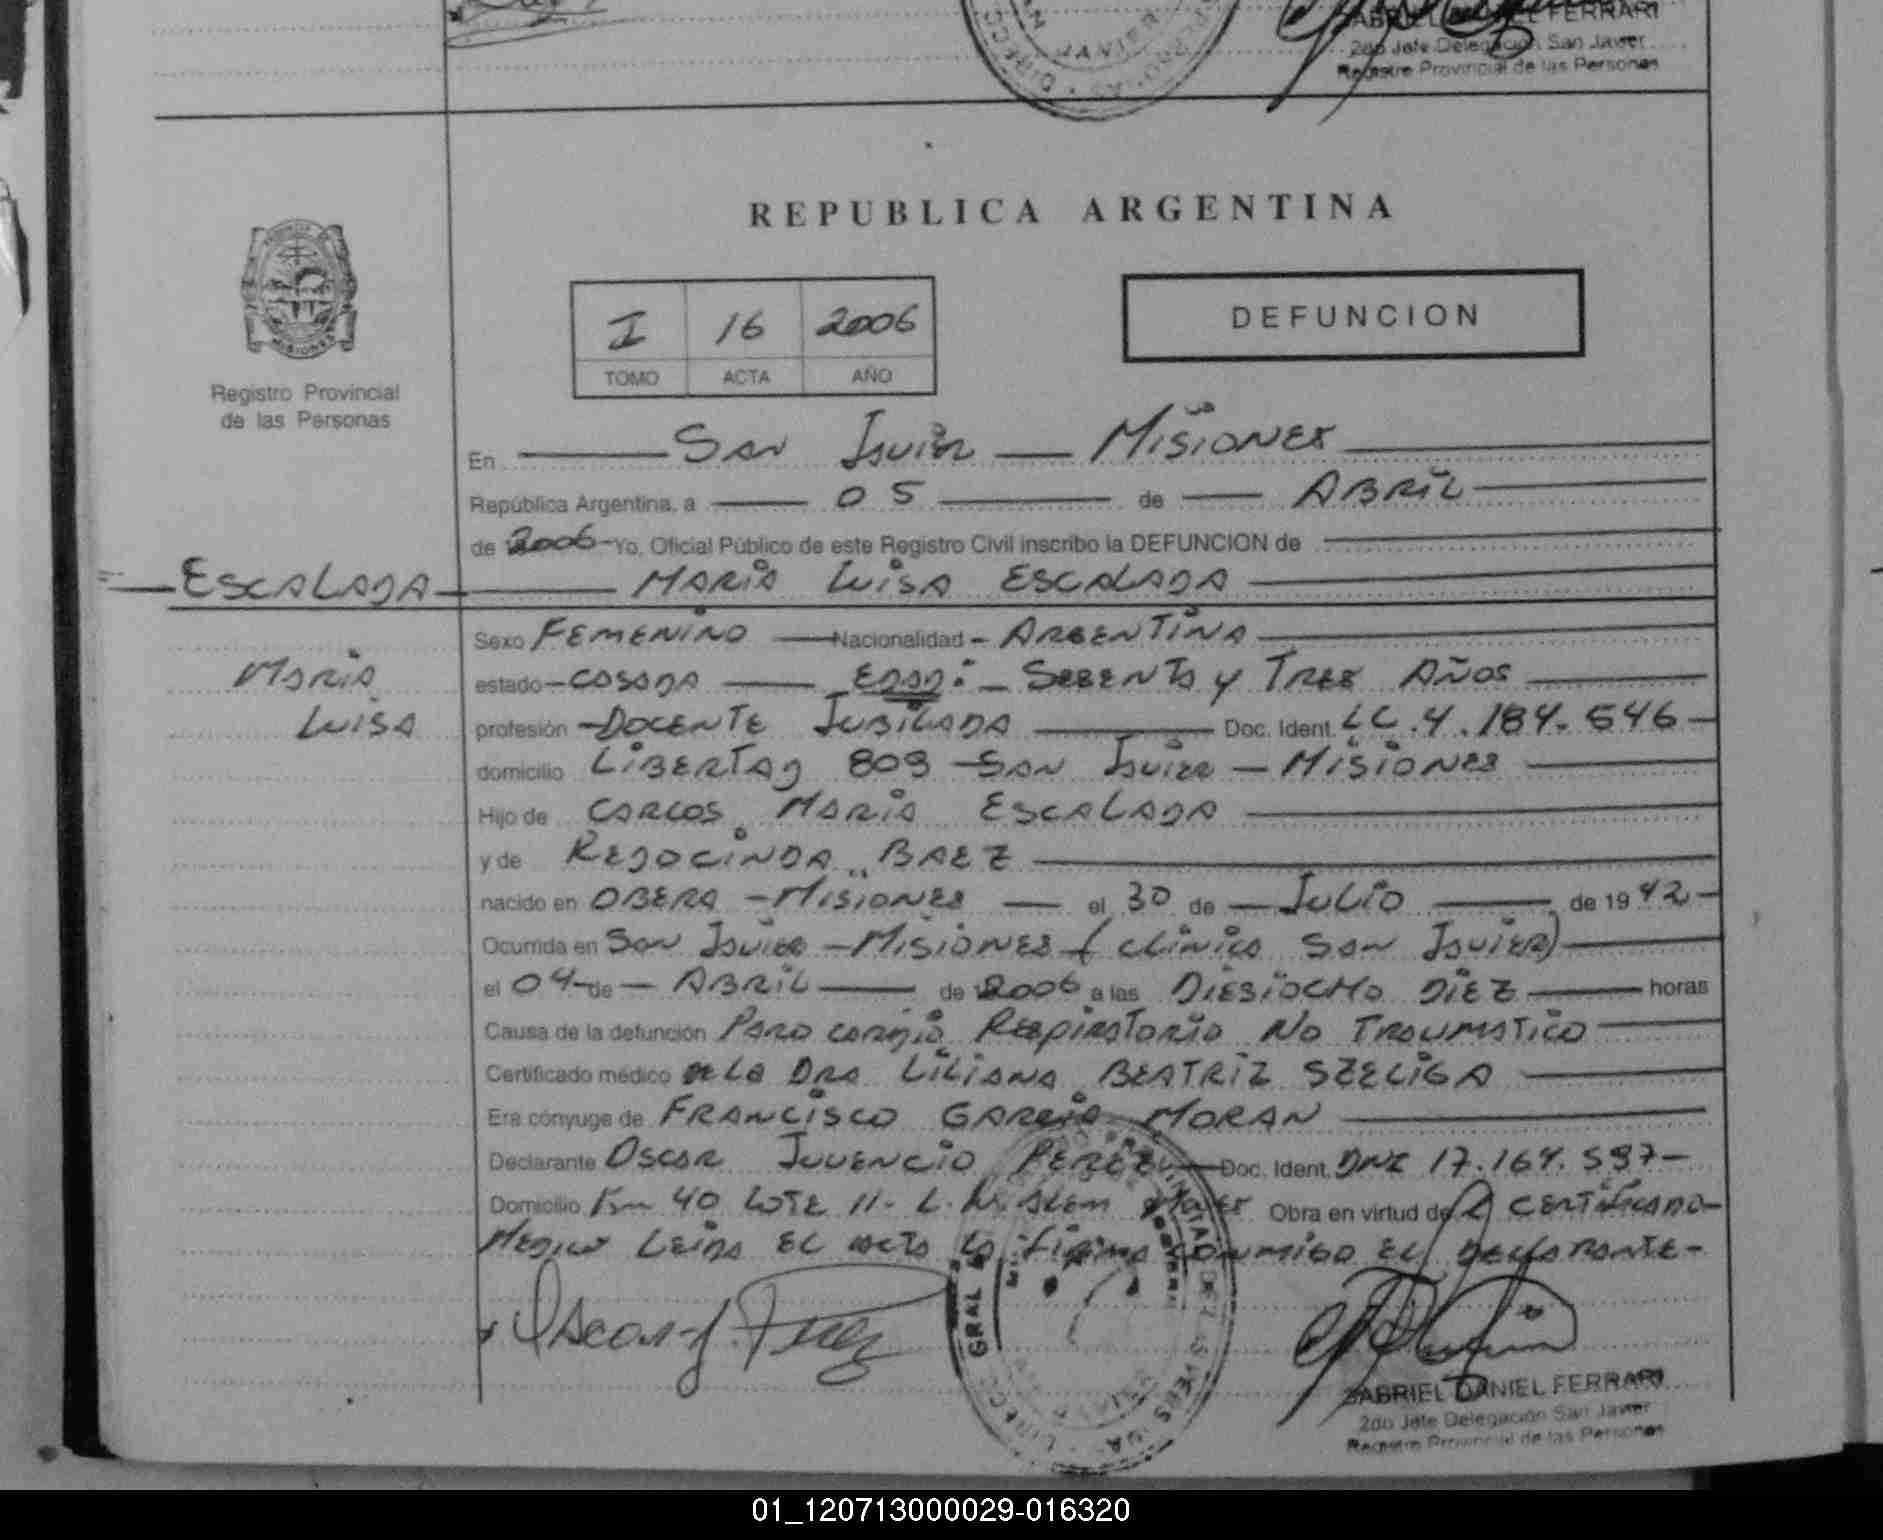 GABRIEL DANIEL FERRARI
2do Jefe Delegación San Javier
Registro Provincial de las Personas
REPUBLICA ARGENTINA
I 16 2006
TOMO ACTA AÑO
DEFUNCION
MISIONES
Registro Provincial
de las Personas
En San Javier Misiones
República Argentina, a 05 de ABRIL
de 2006 Yo, Oficial Público de este Registro Civil inscribo la DEFUNCION de
ESCALADA MARIA LUISA ESCALADA
Sexo FEMENINO Nacionalidad - ARGENTINA
MARIA
LUISA
estado - CASADA EDAD: - SESENTA y TRES AÑOS
profesión - DOCENTE JUBILADA Doc. Ident. LC. 4.184.546
domicilio LIBERTAD 809 - SAN Javier - MISIONES
Hijo de CARLOS MARIA ESCALADA
y de REDOCINDA BAEZ
nacido en OBERA - MISIONES el 30 de JULIO de 1942
Ocurrida en San Javier - MISIONES (CLINICA SAN Javier)
el 04 de ABRIL de 2006 a las DIESIOCHO DIEZ horas
Causa de la defunción Paro cardio Respiratorio No Traumatico
Certificado médico de la DRA LILIANA BEATRIZ SZELIGA
Era cónyuge de FRANCISCO GARCIA MORAN
Declarante OSCAR JUVENCIO PEREZ Doc. Ident. DNI 17.164.597
Domicilio Km 40 LOTE 11 - L. N. ALEM Obra en virtud de CERTIFICADO
MEDICO LEIDA EL ACTA la firma conmigo EL DECLARANTE -
Oscar J. Perez
GABRIEL DANIEL FERRARI
2do Jefe Delegación San Javier
Registro Provincial de las Personas
01_120713000029-016320